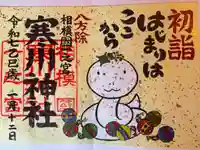 初詣
はじまりは
ここから
八方除
相模國一之宮
寒川神社
令和七乙巳歳